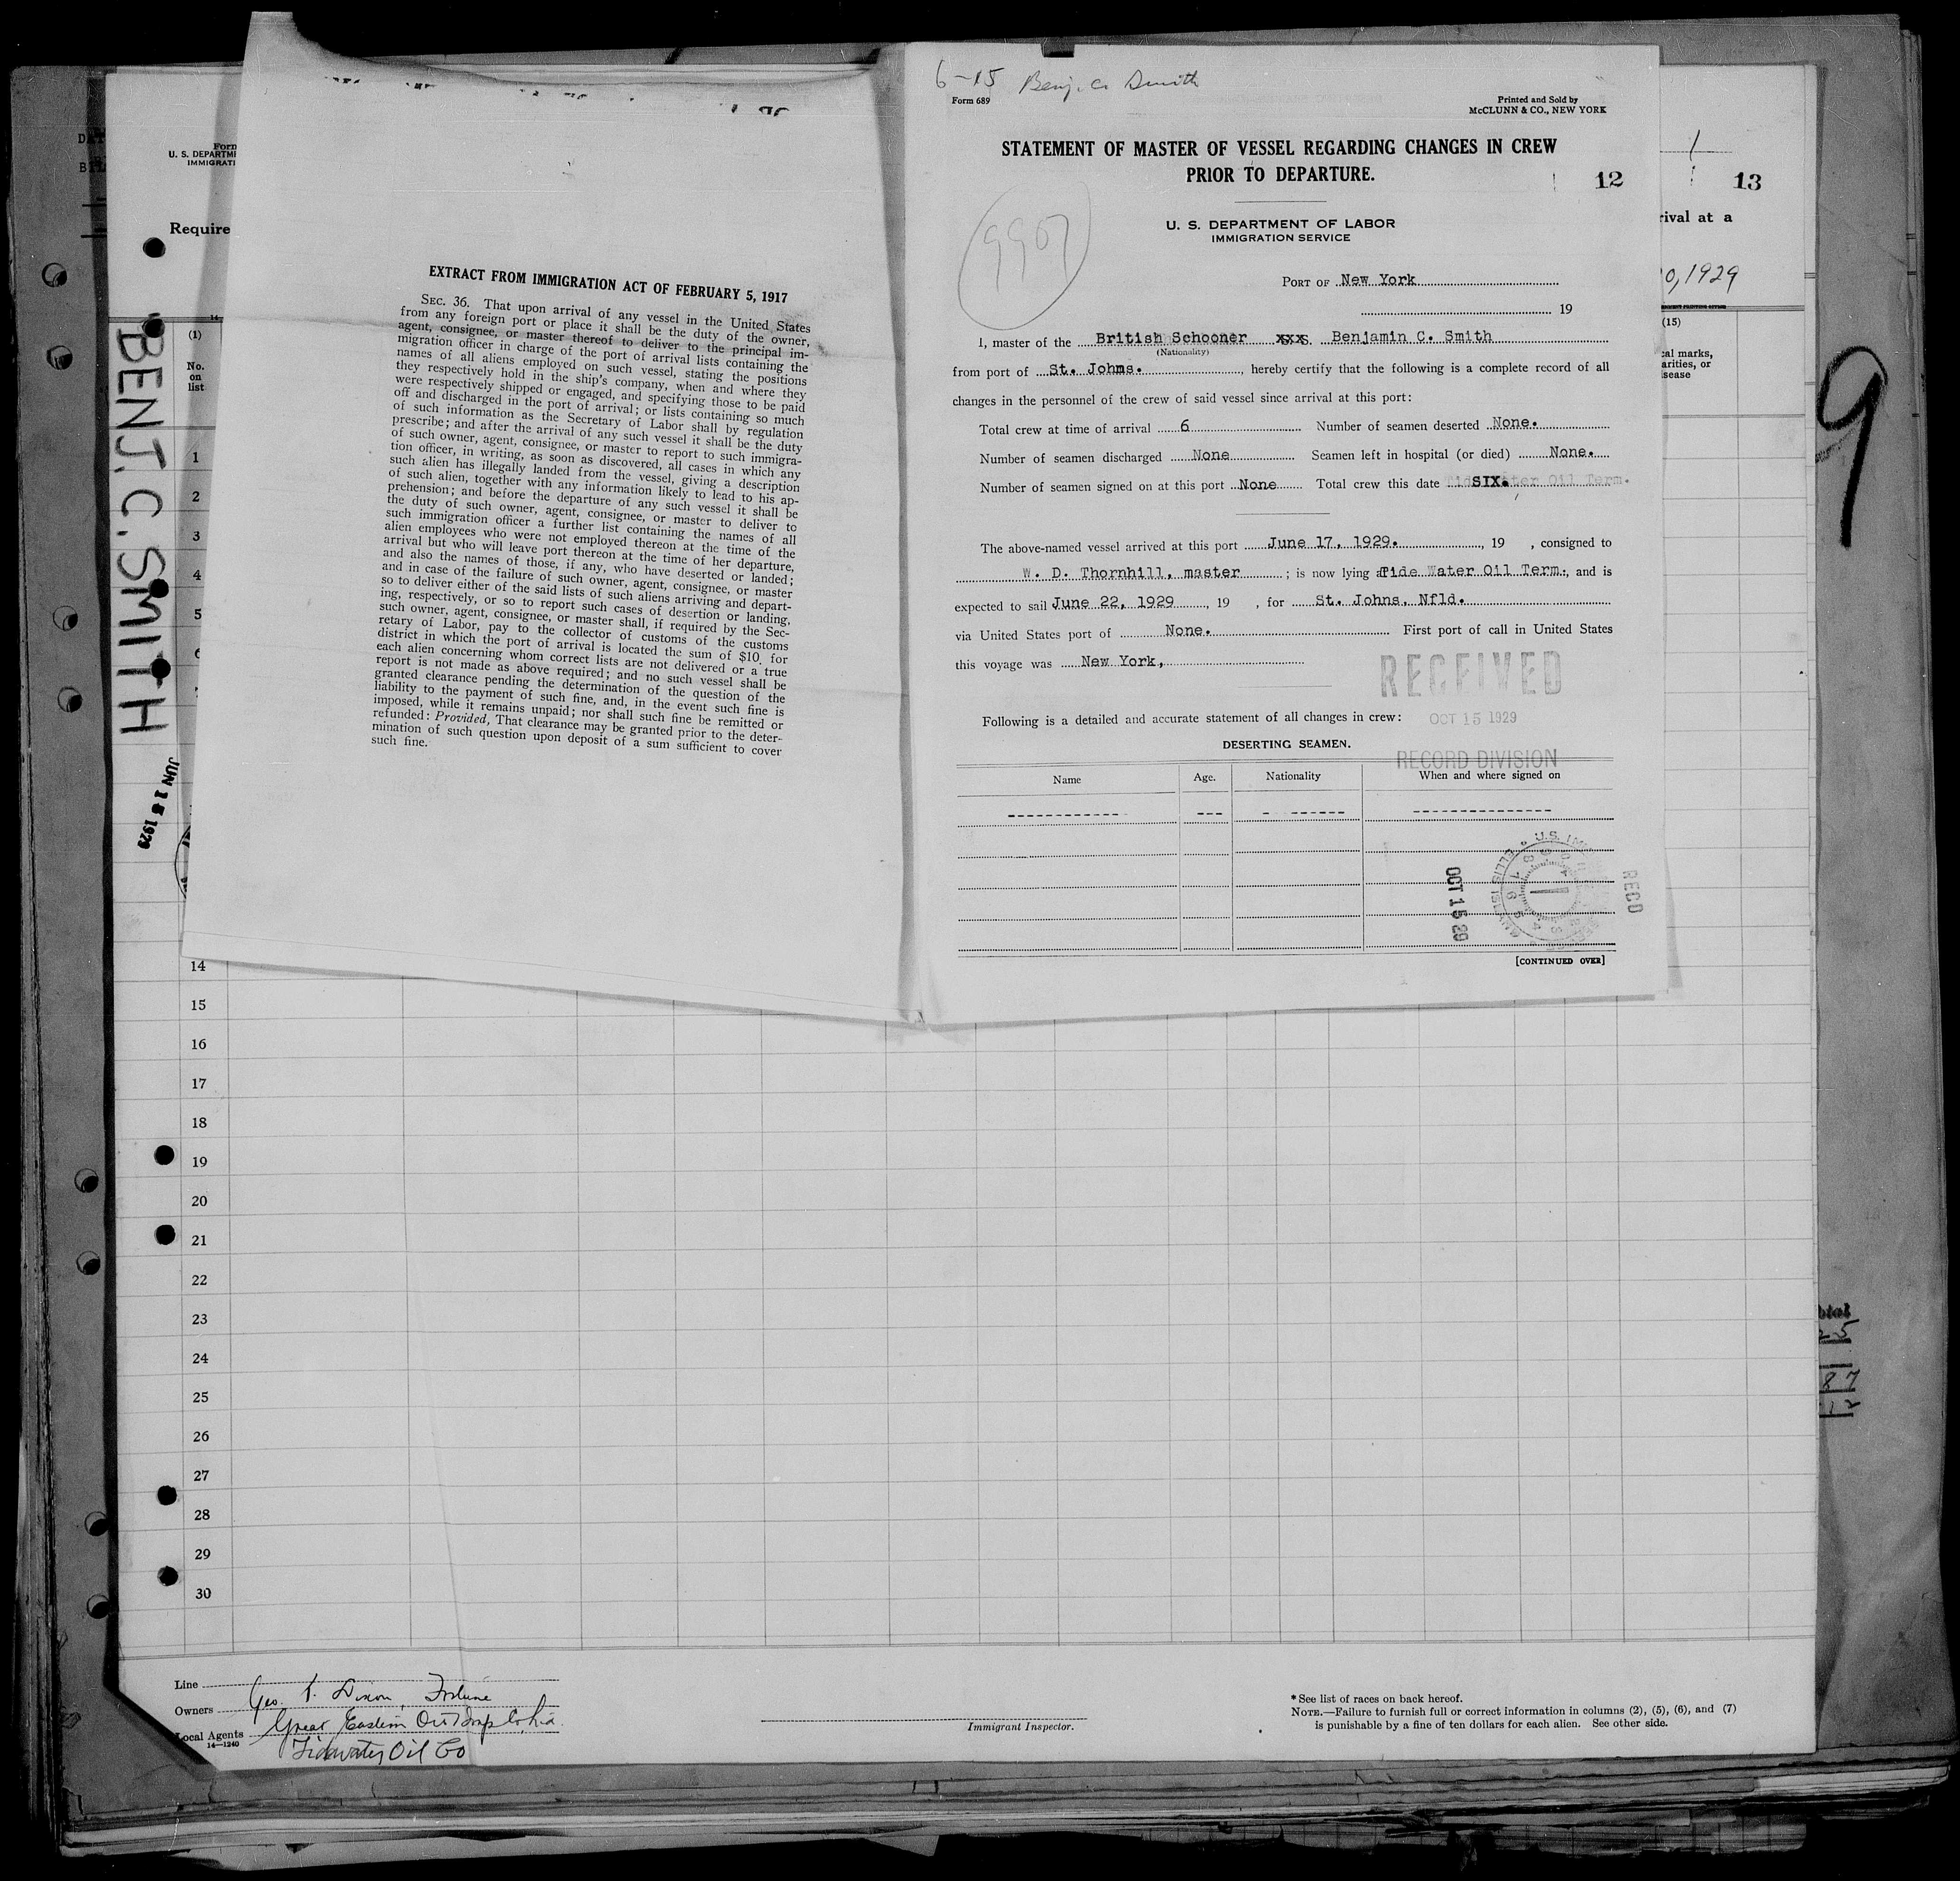 6-15 Benj. C. Smith
Form 689
Printed and Sold by
McCLUNN & CO., NEW YORK
STATEMENT OF MASTER OF VESSEL REGARDING CHANGES IN CREW
PRIOR TO DEPARTURE.
12
U. S. DEPARTMENT OF LABOR
IMMIGRATION SERVICE
9907
PORT OF New York
19
I, master of the British Schooner xxxS. Benjamin C. Smith
(Nationality)
from port of St. Johns. , hereby certify that the following is a complete record of all
changes in the personnel of the crew of said vessel since arrival at this port:
Total crew at time of arrival 6 Number of seamen deserted None.
Number of seamen discharged None Seamen left in hospital (or died) None.
Number of seamen signed on at this port None Total crew this date SIX.
The above-named vessel arrived at this port June 17, 1929. , 19 , consigned to
W. D. Thornhill, master ; is now lying Tide Water Oil Term. , and is
expected to sail June 22, 1929 , 19 , for St. Johns, Nfld.
via United States port of None. First port of call in United States
this voyage was New York,
RECEIVED
Following is a detailed and accurate statement of all changes in crew: OCT 15 1929
DESERTING SEAMEN.
RECORD DIVISION
Name Age. Nationality When and where signed on
OCT 15 29
RECD
[CONTINUED OVER]
EXTRACT FROM IMMIGRATION ACT OF FEBRUARY 5, 1917
SEC. 36. That upon arrival of any vessel in the United States
from any foreign port or place it shall be the duty of the owner,
agent, consignee, or master thereof to deliver to the principal im-
migration officer in charge of the port of arrival lists containing the
names of all aliens employed on such vessel, stating the positions
they respectively hold in the ship's company, when and where they
were respectively shipped or engaged, and specifying those to be paid
off and discharged in the port of arrival; or lists containing so much
of such information as the Secretary of Labor shall by regulation
prescribe; and after the arrival of any such vessel it shall be the duty
of such owner, agent, consignee, or master to report to such immigra-
tion officer, in writing, as soon as discovered, all cases in which any
such alien has illegally landed from the vessel, giving a description
of such alien, together with any information likely to lead to his ap-
prehension; and before the departure of any such vessel it shall be
the duty of such owner, agent, consignee, or master to deliver to
such immigration officer a further list containing the names of all
alien employees who were not employed thereon at the time of the
arrival but who will leave port thereon at the time of her departure,
and also the names of those, if any, who have deserted or landed;
and in case of the failure of such owner, agent, consignee, or master
so to deliver either of the said lists of such aliens arriving and depart-
ing, respectively, or so to report such cases of desertion or landing,
such owner, agent, consignee, or master shall, if required by the Sec-
retary of Labor, pay to the collector of customs of the customs
district in which the port of arrival is located the sum of $10 for
each alien concerning whom correct lists are not delivered or a true
report is not made as above required; and no such vessel shall be
granted clearance pending the determination of the question of the
liability to the payment of such fine, and, in the event such fine is
imposed, while it remains unpaid; nor shall such fine be remitted or
refunded: Provided, That clearance may be granted prior to the deter-
mination of such question upon deposit of a sum sufficient to cover
such fine.
Form
U. S. DEPARTM
IMMIGRATI
Require
BENJ. C. SMITH
JUN 15 1929
(1)
No.
on
list
1
2
3
4
5
6
7
14
15
16
17
18
19
20
21
22
23
24
25
26
27
28
29
30
13
rival at a
0, 1929
(15)
al marks,
arities, or
sease
9
Line
Owners Geo. T. Dixon, Fortune
Local Agents Great Eastern
14—1240
Tidewater Oil Co
Immigrant Inspector.
* See list of races on back hereof.
NOTE.—Failure to furnish full or correct information in columns (2), (5), (6), and (7)
is punishable by a fine of ten dollars for each alien. See other side.